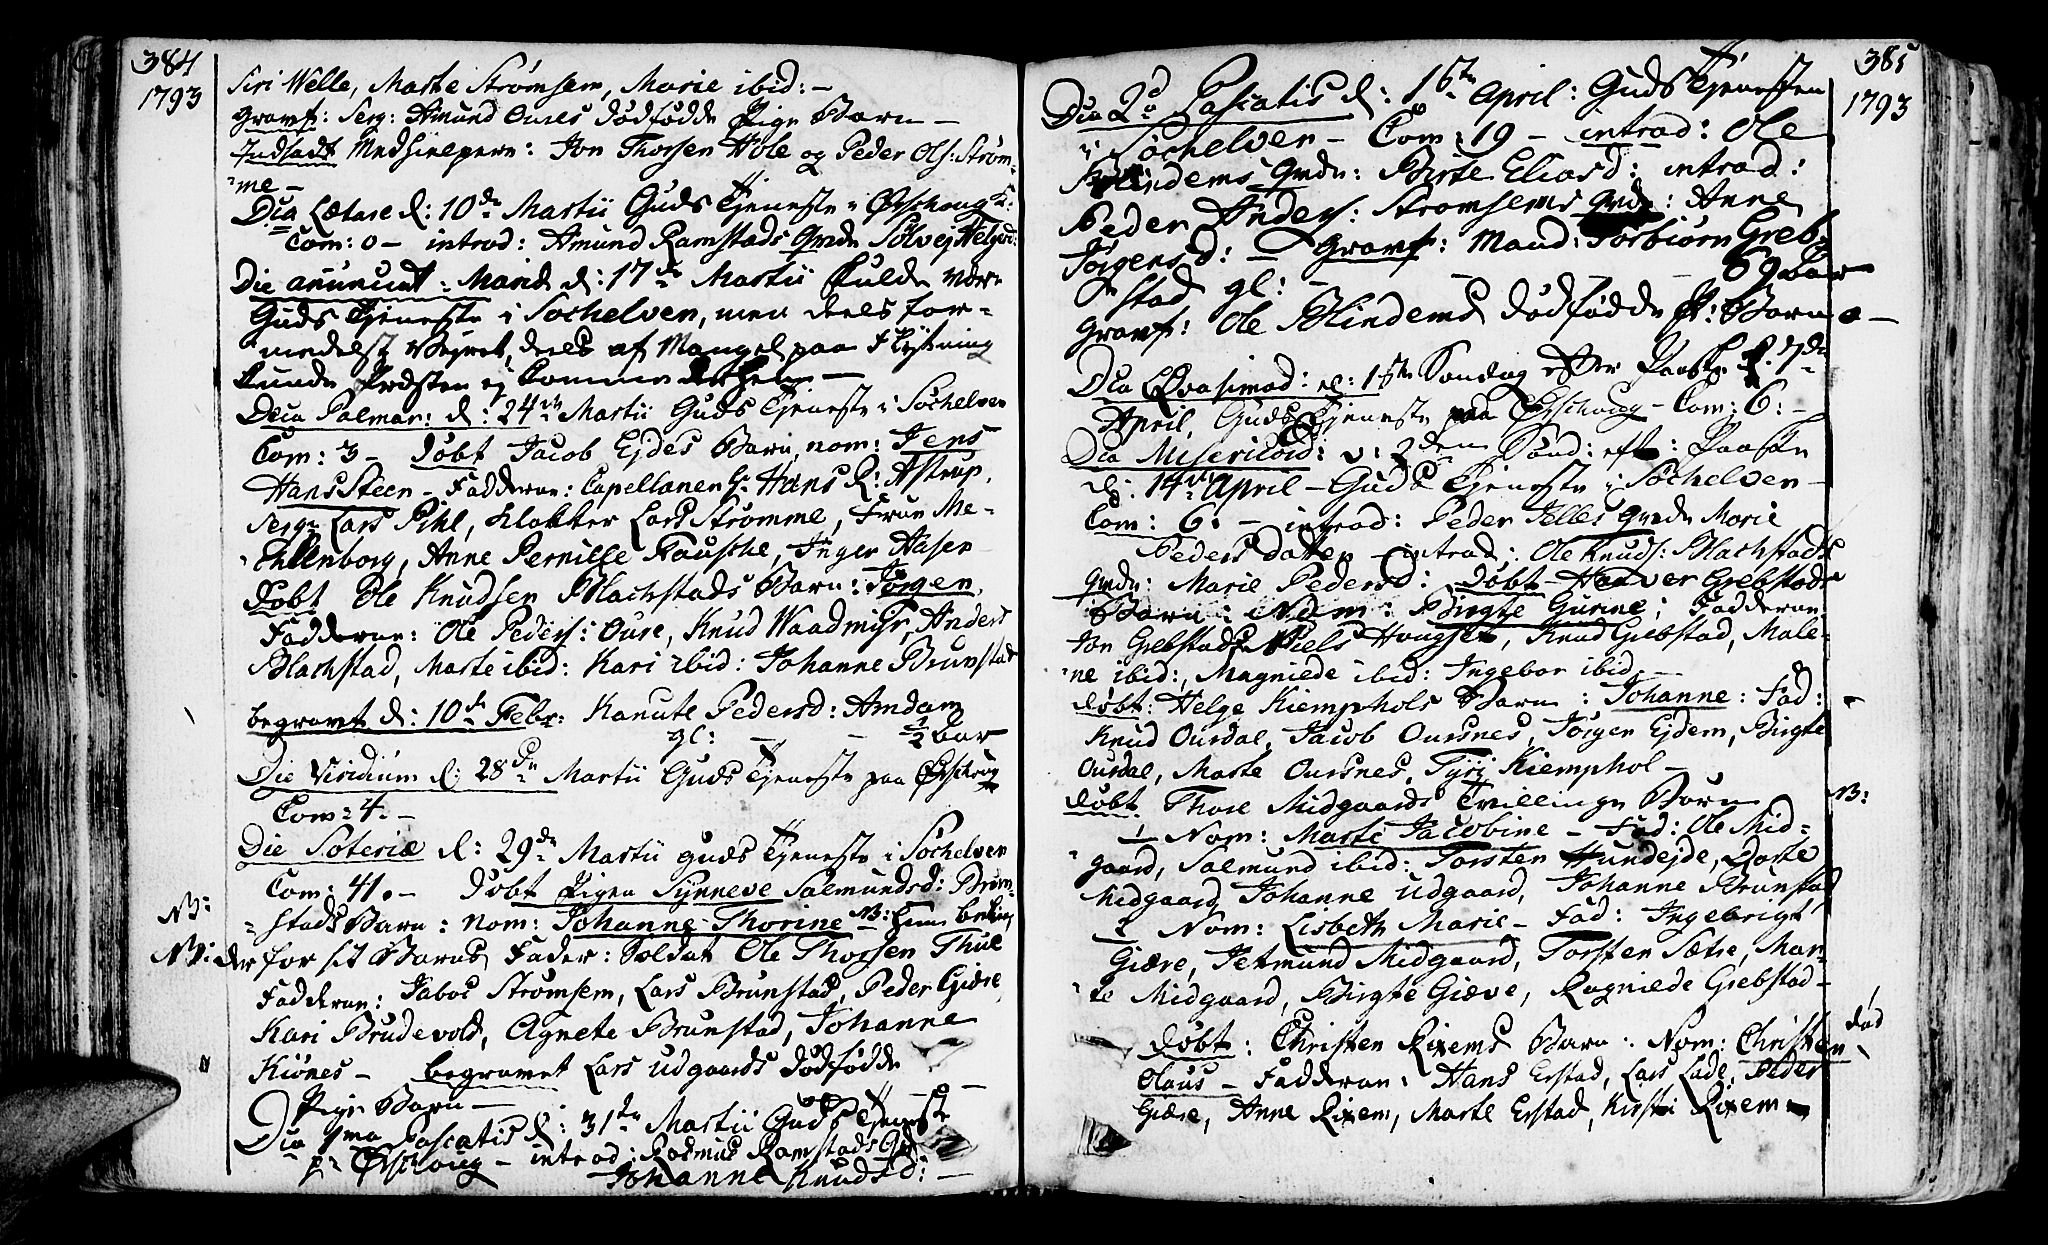 384
1793
Siri Welle, Marte Strømsem, Marie ibid: -
gravf: Serg: Amund Oures dødfødde Pige Barn -
Indsadt Medhielpere: Jon Thorsen Hole og Peder Ols: Strøm-
"me -
Dia Lætare d: 10de Martii Guds Tjeneste i Ørschoug K:
Com: 0 - introd: Amund Ramstads Qvde Solvej Helgesd:
Die anunciat: Mariæ d: 17de Martii skulde være
Guds Tjeneste i Sochelven, men deels for-
"medelst Vejret, deels af Mangel paa Flytning
kunde Præsten ej komme derhen. -
Dia Palmar: d: 24de Martii Guds Tjeneste i Sochelven
Com: 3 - døbt Jacob Ejdes Barn, nom: Jens
Hans Steen - Fadderne: Capellanen Hr Hans R: Astrup,
Serge Lars Pihl, Klokker Lars Strømme, Frue Me-
"chlenborg, Anne Pernille Fausche, Inger Aasen
døbt Ole Knudsen Blachstads Barn: Jørgen.
Fadderne: Ole Peders: Oure, Knud Waadmyr, Anders
Blachstad, Marte ibid: Kari ibid: Johanne Brunstad
begravet d: 10de Febr: Kanute Pedersd: Amdam
gl: - - 1/2 Aar
Die Viridium d: 28de Martii Guds Tjeneste paa Ørschoug
Com: 4. -
Die Soteriæ d: 29de Martii Guds Tjeneste i Sochelven
Com: 41. - døbt Pigen Synneve Salmundsd: Brun-
NB: "stads Barn: nom: Johanne Thorine NB: hun bekien
NB: der for sit Barns Fader: Soldat Ole Thorsen Thue
Fadderne: Jaboe Strømsem, Lars Brunstad, Peder Giære
Kari Brudevold, Agnete Brunstad, Johanne
Kiønes - begravet Lars Udgaards dødfødde
Pige Barn -
Dia 1ma Pascatis d: 31te Martii Guds Tjeneste
p: Ørschoug - introd: Rasmus Ramstads Qvd:
Johanne Knudsd: -
385
1793
Dia 2da Pascatis d: 1ste April: Guds Tjenesten
i Sochelven - Com: 19 - introd: Ole
Blindems Qvde: Birte Eliasd: introd:
Peder Anders: Strømsems Qvde: Anne
Jørgensd: - gravf: Mand: Torbiørn Greb-
stad gl: - 69 Aar
gravf: Ole Blindems dødfødde P: Barn -
Dia Qvasimod: d: 1ste Søndag efter Paaske d: 7de
April, Guds Tjeneste paa Ørschoug - Com: 6: -
Dia Misericord: v: 2den Sønd: eft: Paaske
d: 14de April - Guds Tjeneste i Sochelven -
Com: 6: - introd: Peder Velles Qvde Marie
Peders datter - introd: Ole Knuds: Blachstads
Qvde: Marie Pedersd: døbt - Haaver Grebstads
Barn: Nom: Birgte Gurine: Fadderne
Jon Grebstad, Niels Hougset, Knud Grebstad, Male-
"ne ibid:, Magniede ibid: Ingebor ibid -
døbt: Helge Kiemphols Barn: Johanne: Fad:
Knud Ourdal, Jacob Oursnes, Jørgen Ejdem, Birgte
Ourdal, Marte Oursnes, Tyri Kiemphol -
døbt. Thore Midgaards Tvillinge Børn NB:
1 Nom: Marte Jacobine - Fad: Ole Mid-
"gaard, Salmund ibid: Torsten Hundejde, Dorte
Midgaard, Johanne Udgaard, Johanne Brunstad
2 Nom: Lisbeth Marie - Fad: Ingebrigt
Giære, Jetmund Midgaard, Torsten Sætre, Mar-
"te Midgaard, Birgte Giære, Ragniede Grebstad -
døbt: Christen Rixems Barn: Nom: Christen død
Olaus - Fadderne: Hans Erstad, Lars Lade, Peder
Giære, Anne Rixem, Marte Erstad, Kirsti Rixem -